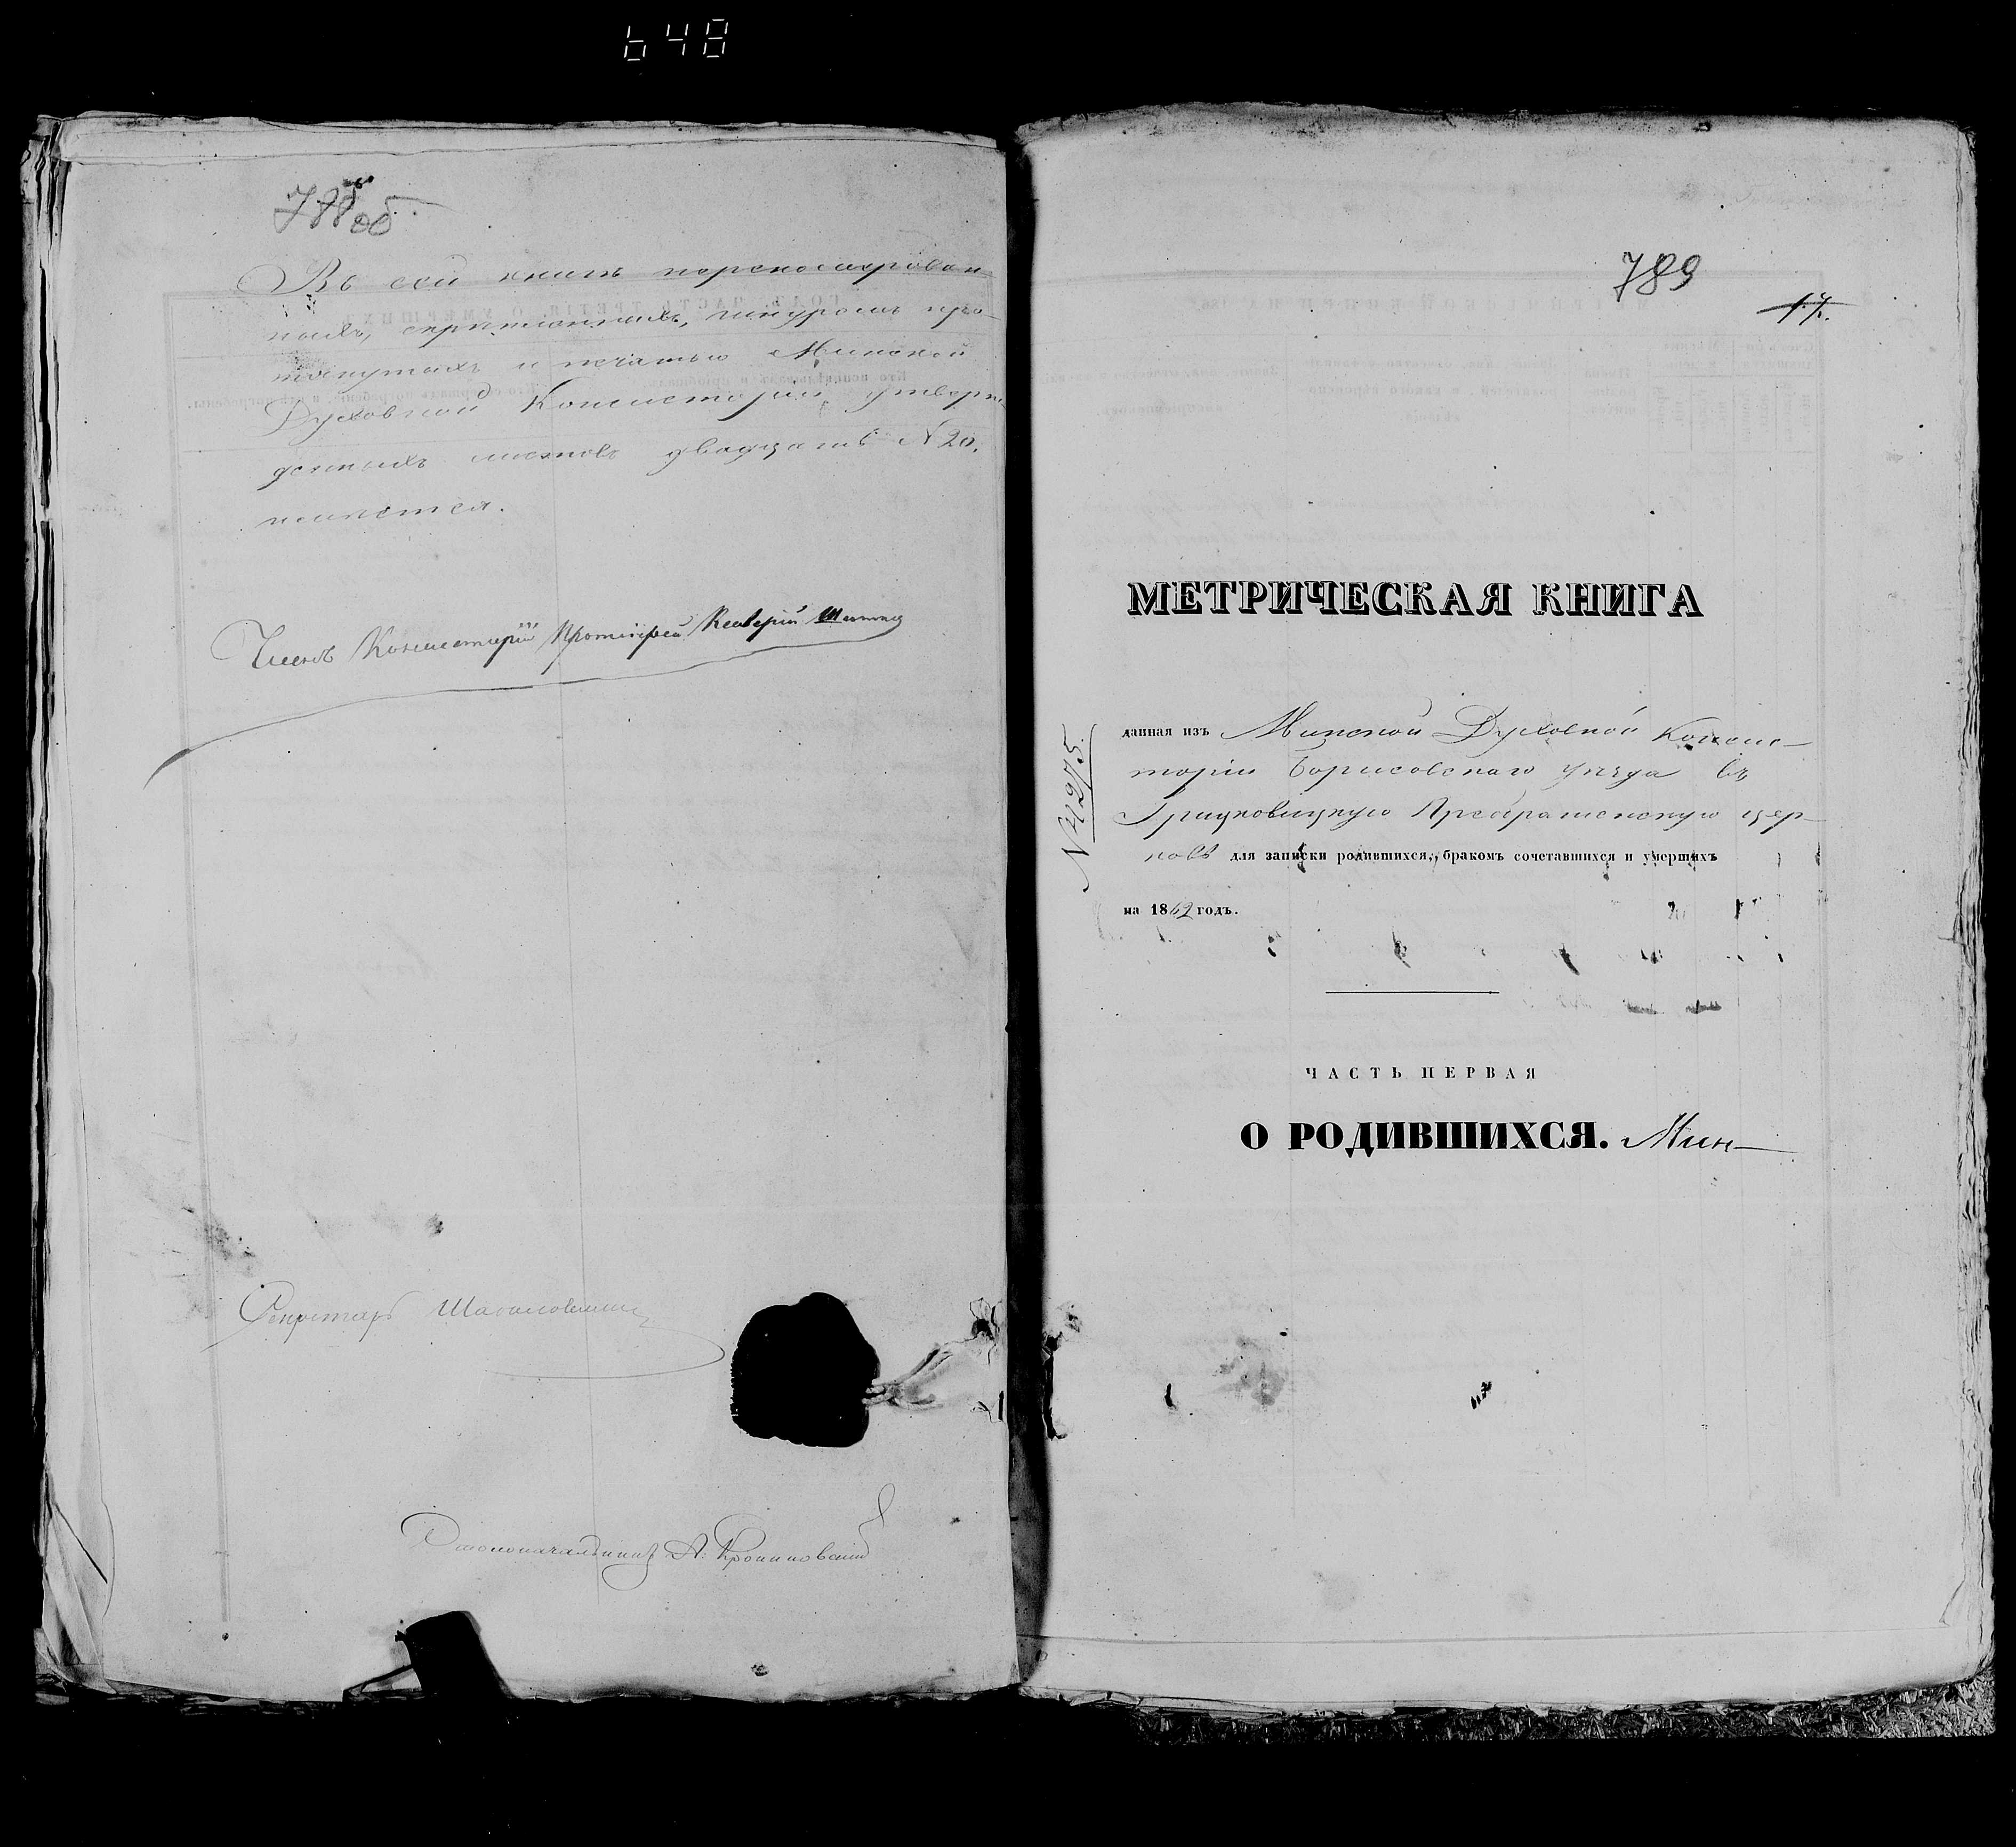 648
788 об.
Въ сей книгѣ переномерован-
ныхъ, скрѣпленныхъ, шнуромъ про-
тянутыхъ и печатью Минской
Духовной Консисторіи утверж-
денныхъ листовъ двадцать N 20.
числится.
Членъ Консисторіи Протоіерей
Секретарь
Столоначальникъ А.
789
17.
МЕТРИЧЕСКАЯ КНИГА
N 4275.
данная изъ Минской Духовной Консис-
торіи Борисовскаго уѣзда въ
Гричковицкую Преображенскую цер-
ковь для записки родившихся, бракомъ сочетавшихся и умершихъ
на 1862 годъ.
ЧАСТЬ ПЕРВАЯ
О РОДИВШИХСЯ. Мин-